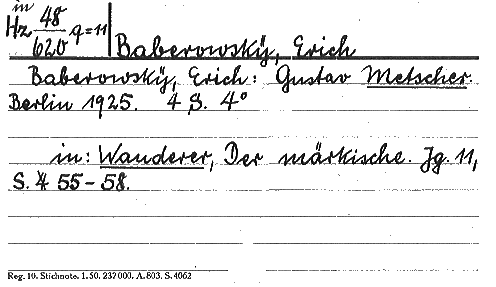 in
Hz 48/620 q=11
Baberowskÿ, Erich
Baberowskÿ, Erich: Gustav Metscher.
Berlin 1925. 4 S. 4°
in: Wanderer, Der märkische. Jg. 11,
S. 55-58.
Reg. 10. Stichnote. 1. 50. 237000. A. 803. S. 4062